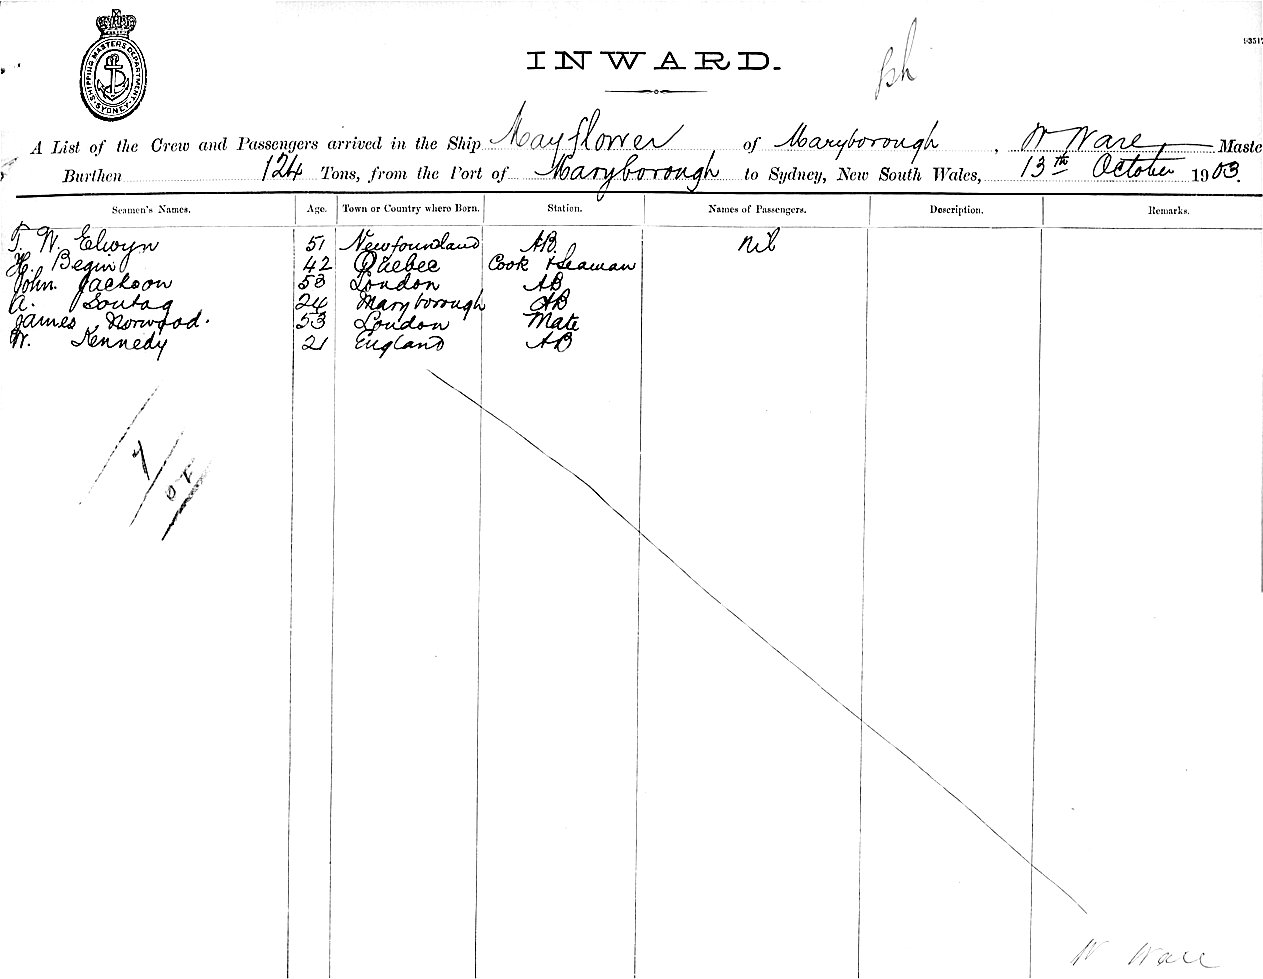 SHIPPING MASTERS DEPARTMENT SYDNEY
INWARD.
A List of the Crew and Passengers arrived in the Ship Mayflower of Maryborough, W Ware Maste
Burthen 124 Tons, from the Port of Maryborough to Sydney, New South Wales, 13th October 1903.
Seamen's Names. Age. Town or Country where Born. Station. Names of Passengers. Description. Remarks.
T. W. Elwyn 51 Newfoundland AB. nil
H. Begin 42 Quebec Cook & Seaman
John. Jackson 53 London AB
A. Sontag 24 Maryborough AB
James Norwood. 53 London Mate
W. Kennedy 21 England AB
W Ware